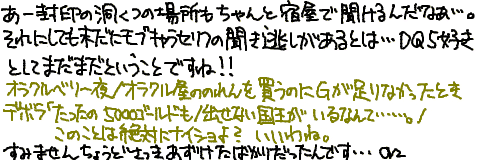 あー封印の洞くつの場所もちゃんと宿屋で聞けるんだなぁ…。
それにしても未だにモブキャラセリフの聞き逃しがあるとは…DQ5好き
としてまだまだということですね!!
オラクルベリー夜/オラクル屋ののれんを買うのにGが足りなかったとき
デボラ「たったの5000ゴールドも/出せない国王が いるなんて……。/
このことは絶対にナイショよ? いいわね。
すみませんちょうどさっきあずけたばかりだったんです… orz